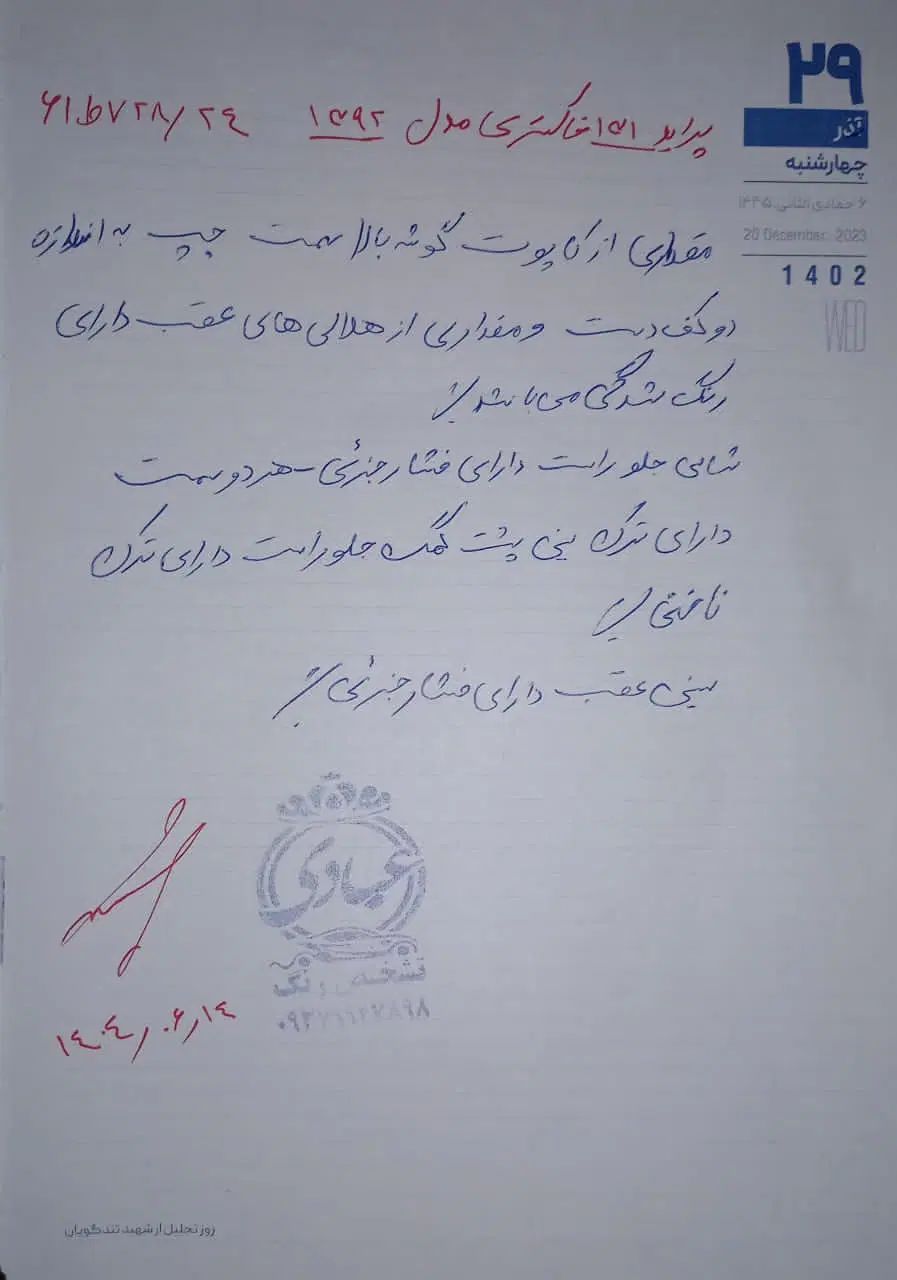 ۲۹
آذر
چهارشنبه
۶ جمادی الثانی ۱۴۴۵
20 December. 2023
1402
WED
پراید ۱۳۱ خاکستری مدل ۱۳۹۲ ۶۱ط۷۲۸/۲۴
مقداری از کاپوت گوشه بالا سمت چپ به اندازه
دو کف دست و مقداری از هلالی های عقب دارای
رنگ شدگی می باشد
شاسی جلو راست دارای فشار جزئی - هر دو سمت
دارای ترک سینی پشت کمک جلو راست دارای ترک
ناخنی
سینی عقب دارای فشار جزئی
عبادی
تشخیص رنگ
۱۴۰۴/۰۶/۱۴
روز تجلیل از شهید تندگویان